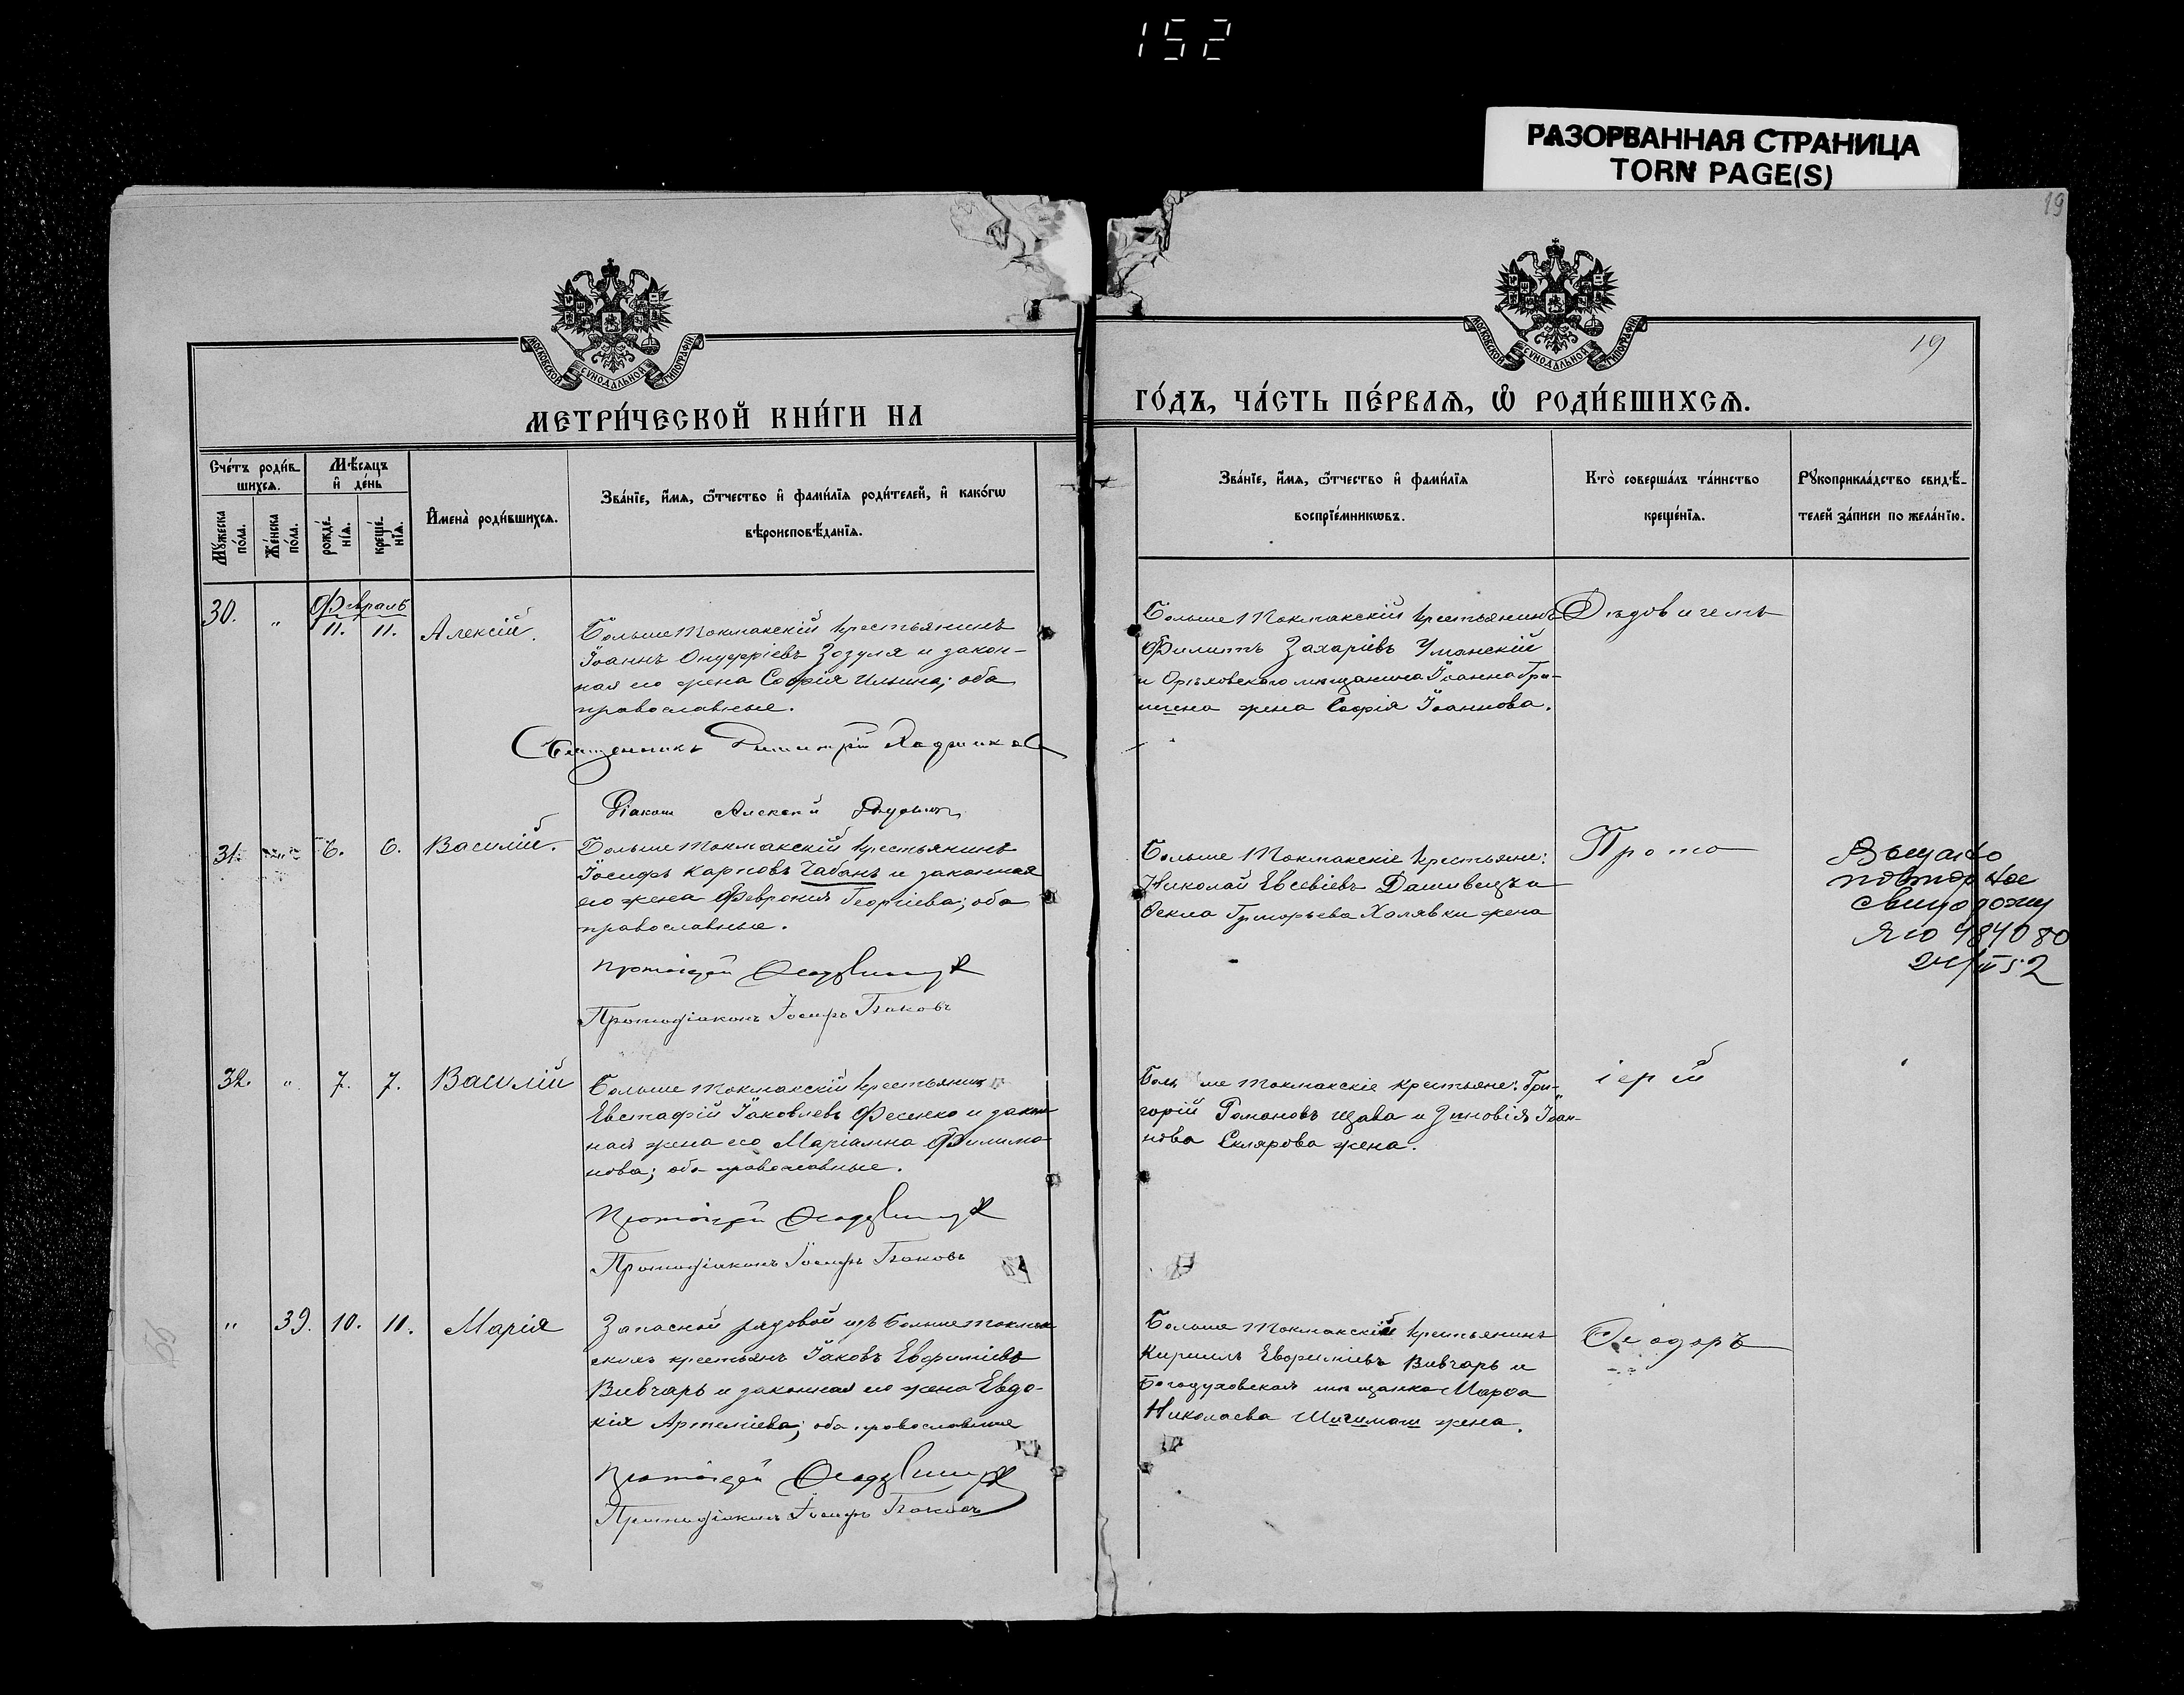 152
РАЗОРВАННАЯ СТРАНИЦА
TORN PAGE(S)
19
19
МОСКОВСКОЙ СѴНОДАЛЬНОЙ ТИПОГРАФІИ
МОСКОВСКОЙ СѴНОДАЛЬНОЙ ТИПОГРАФІИ
МЕТРИ́ЧЕСКОЙ КНИ́ГИ НА
ГО́ДЪ, ЧА́СТЬ ПЕ́РВАѦ, Ѡ РОДИ́ВШИХСѦ.
Сче́тъ роди́в-
шихсѧ.
Мѣ́сѧцъ
и҆ де́нь
Мꙋ́жеска
по́ла.
Же́нска
по́ла.
рожде́-
нїѧ.
креще́-
нїѧ.
И҆мена̀ роди́вшихсѧ.
Зва́нїе, и҆́мѧ, ѻ҆́тчество и҆ фами́лїѧ роди́телей, и҆ како́гѡ
вѣроисповѣ́данїѧ.
Зва́нїе, и҆́мѧ, ѻ҆́тчество и҆ фами́лїѧ
воспрїе́мникѡвъ.
Кто̀ соверша́лъ та́инство
креще́нїѧ.
Рꙋкоприкла́дство свидѣ́-
телей за́писи по жела́нїю.
30. " Февраль
11. 11. Алексій.
Больше Токмакскій крестьянинъ
Іоаннъ Онуфріевъ Зозуля и закон-
ная его жена Софія Ильина; оба
православные.
Священникъ Димитрій
Діаконъ Алексій
Больше Токмакскій крестьянинъ
Филиппъ Захаріевъ Уманскій
и Орѣховскаго мѣщанина Іоанна Гри-
жена Софія Іоаннова.
Дѣдовичемъ
31. 6. 6. Василій.
Больше Токмакскій крестьянинъ
Іосифъ Карповъ Чабанъ и законная
его жена Февронія Георгіева; оба
православные.
Протоіерей
Протодіаконъ Іосифъ Баковъ
Больше Токмакскіе крестьяне:
Николай Евсевіевъ Дашивецъ и
Ѳекла Григорьева Халявки жена
Прото
повторное
ЯЮ 484080
24/III 52
32. " 7. 7. Василій
Больше Токмакскій крестьянинъ
Евстафій Іаковлевъ Фесенко и закон
ная жена его Маріамна Филимо
нова; оба православные.
Протоіерей
Протодіаконъ Іосифъ Баковъ
Боль ше Токмакскіе крестьяне: Гри-
горій Романовъ Щава и Зиновія Іоан-
нова Склярова жена.
іерей
" 39. 10. 11. Марія
Запасной рядовой изъ Больше Токмак
скихъ крестьянъ Іаковъ Евфиміевъ
Вивчарь и законная его жена Евдо-
кія Артеміева; оба православные
Протоіерей
Протодіаконъ Іосифъ Баковъ
Больше Токмакскій крестьянинъ
Кириллъ Евфиміевъ Вивчарь и
Богодуховская мѣщанка Марѳа
Николаева Шигимаги жена.
Ѳеодоръ